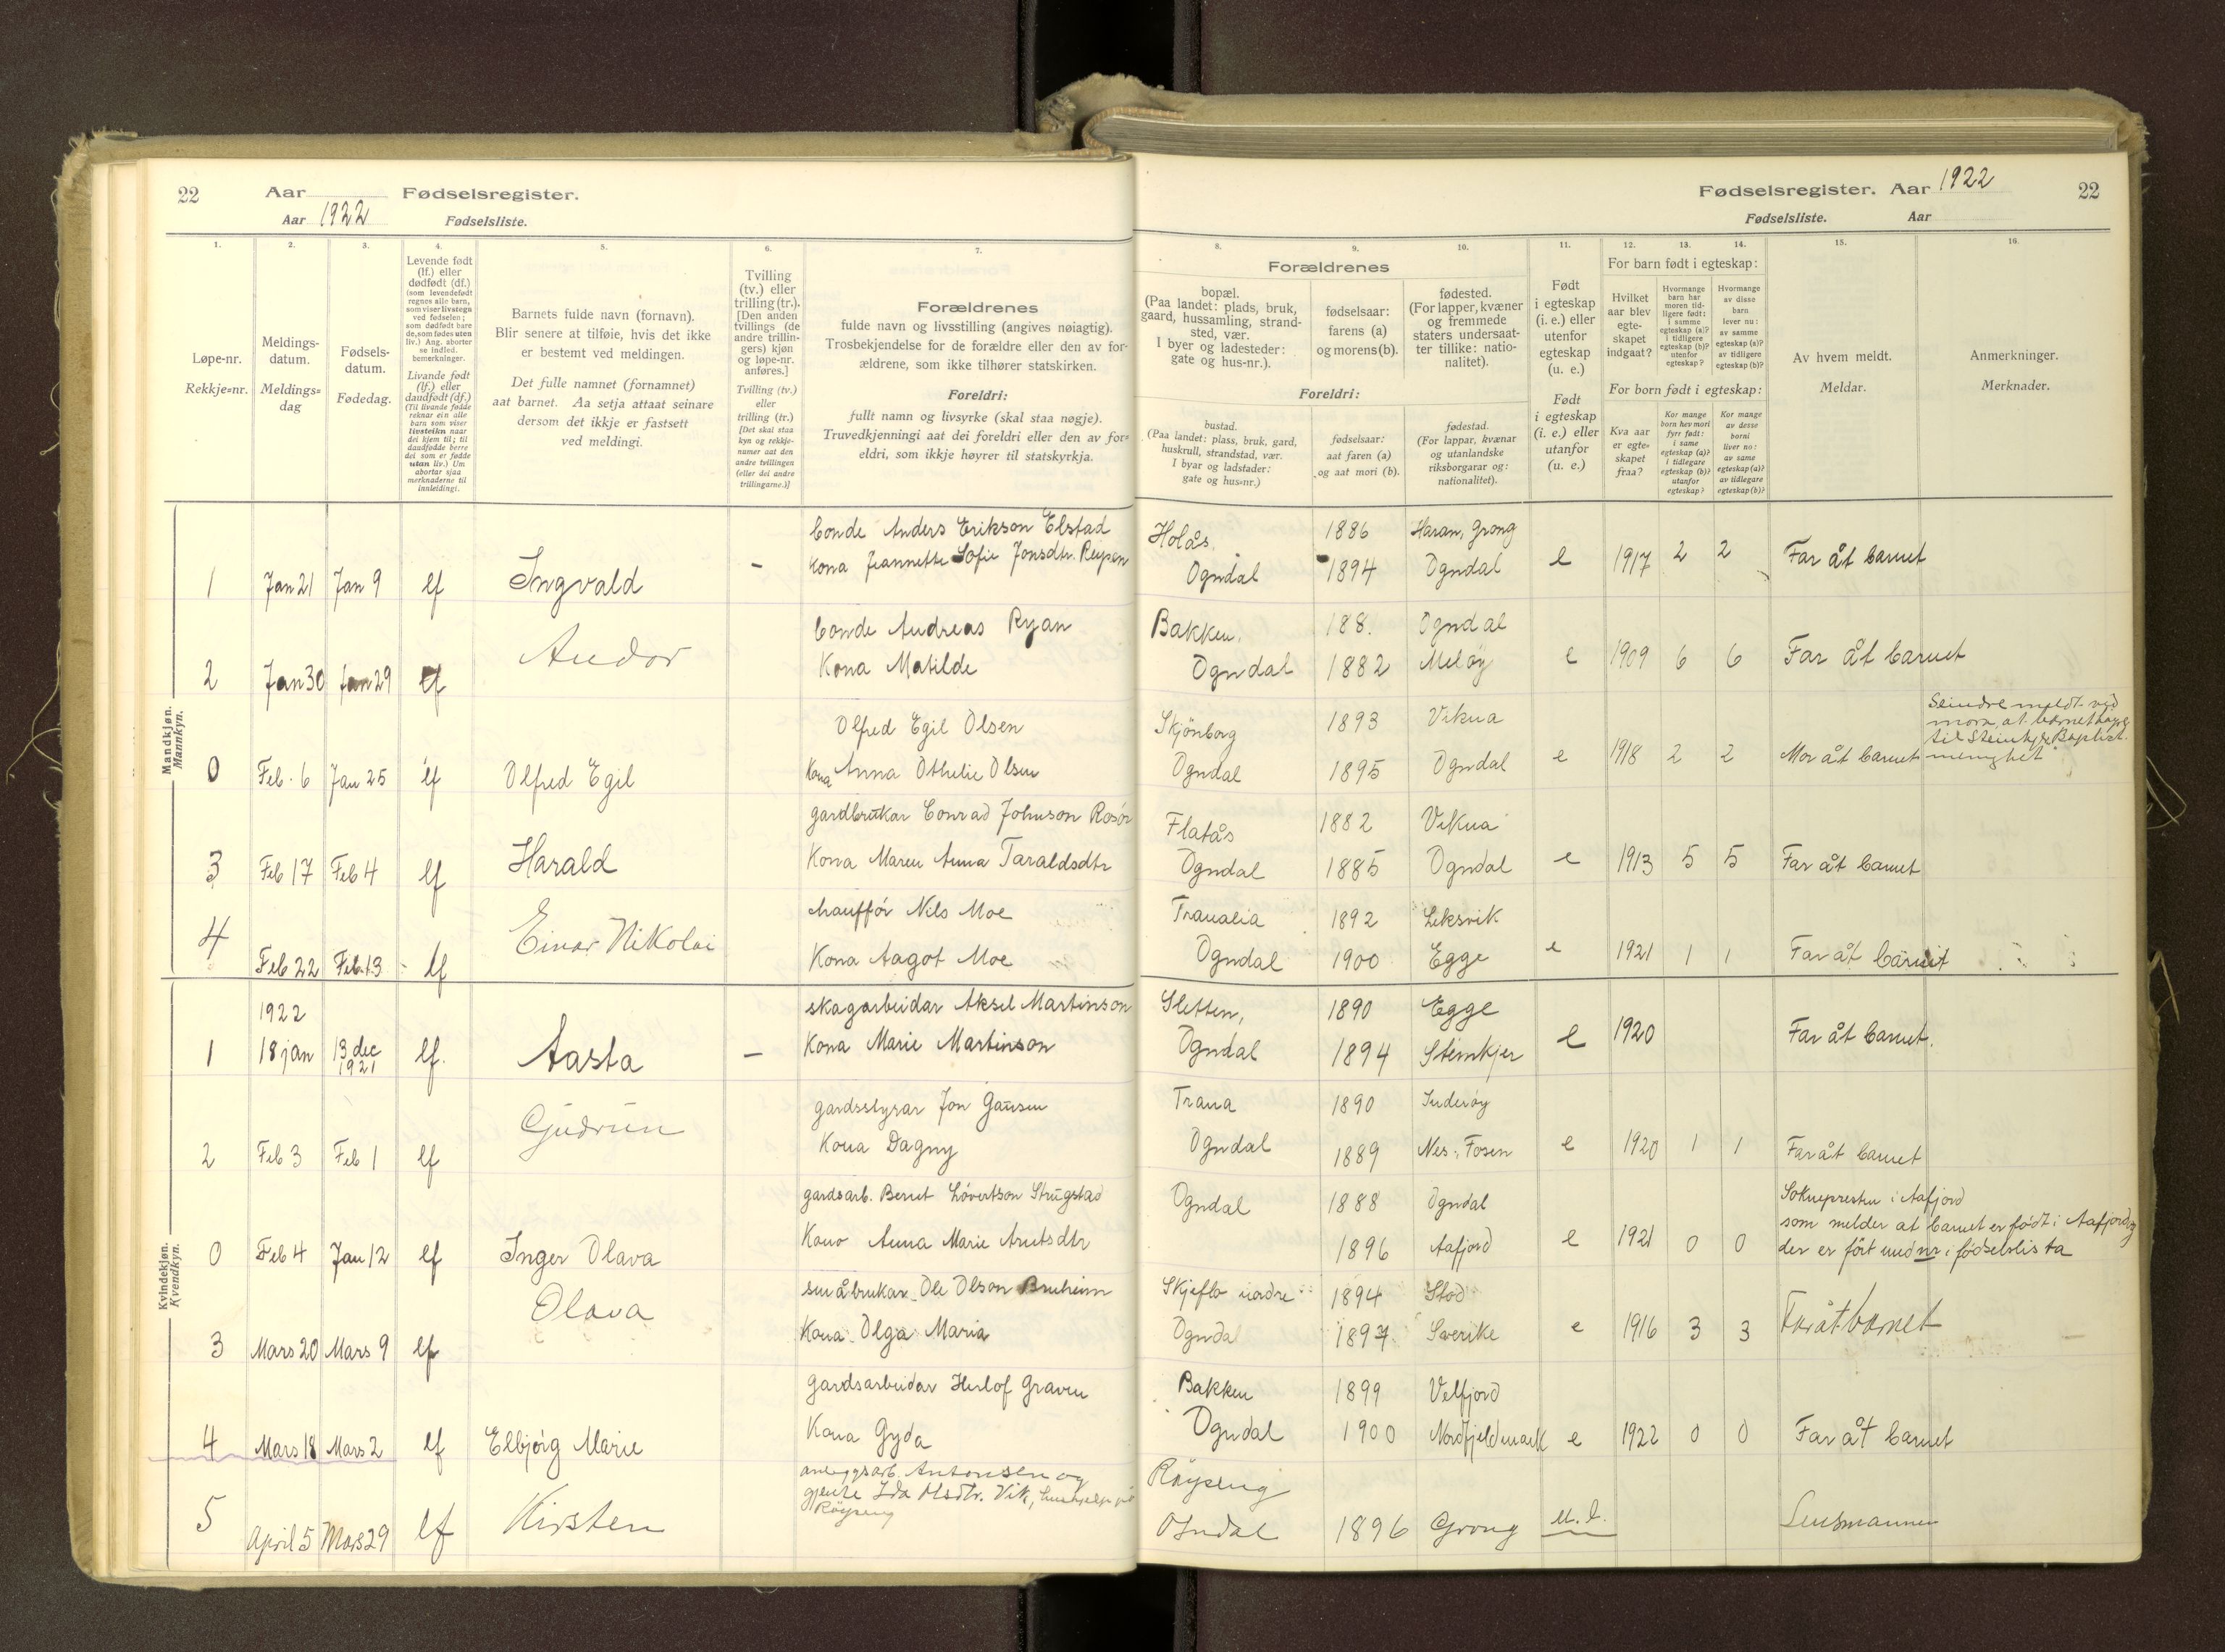 22 Aar Fødselsregister.
Aar 1922 Fødselsliste.
1. 2. 3. 4. 5. 6. 7.
Løpe-nr.
Rekkje-nr.
Meldings-
datum.
Meldings-
dag
Fødsels-
datum.
Fødedag.
Levende født
(lf.) eller
dødfødt (df.)
(som levendefødt
regnes alle barn,
som viser livstegn
ved fødselen;
som dødfødt bare
de, som fødes uten
liv.) Ang. aborter
se indled.
bemerkninger.
Livande født
(lf.) eller
daudfødt (df.)
(Til livande fødde
reknar ein alle
barn som viser
livsteikn naar
dei kjem til; til
daudfødde berre
dei som er fødde
utan liv.) Um
abortar sjaa
merknaderne til
innleidingi.
Barnets fulde navn (fornavn).
Blir senere at tilføie, hvis det ikke
er bestemt ved meldingen.
Det fulle namnet (fornamnet)
aat barnet. Aa setja attaat seinare
dersom det ikkje er fastsett
ved meldingi.
Tvilling
(tv.) eller
trilling (tr.).
[Den anden
tvillings (de
andre trillin-
gers) kjøn
og løpe-nr.
anføres.]
Tvilling (tv.)
eller
trilling (tr.)
[Det skal staa
kyn og rekkje-
numer aat den
andre tvillingen
(eller dei andre
trillingarne.)]
Forældrenes
fulde navn og livsstilling (angives nøiagtig).
Trosbekjendelse for de forældre eller den av for-
ældrene, som ikke tilhører statskirken.
Foreldri:
fullt namn og livsyrke (skal staa nøgje).
Truvedkjenningi aat dei foreldri eller den av for-
eldri, som ikkje høyrer til statskyrkja.
Mandkjøn.
Mannkyn.
bonde Anders Erikson Elstad
1 Jan 21 Jan 9 lf Ingvald – Kona Jeannette Sofie Jonsdtr.
bonde Andreas Ryan
2 Jan 30 Jan 29 lf Andor Kona Matilde
Olfred Egil Olsen
0 Feb. 6 Jan 25 lf Olfred Egil Kona Anna Othelie Olsen
gardbrukar Conrad Johnson
3 Feb 17 Feb 4 lf Harald Kona Maren Anna Taraldsdtr
chauffør Nils Moe
4 Feb 22 Feb. 13 lf Einar Nikolai Kona Aagot Moe
Kvindekjøn.
Kvendkyn.
1922
skogarbeidar Aksel Martinson
1 18 jan 13 dec 1921 lf. Aasta – Kona Marie Martinson
gardsstyrar Jon Gausen
2 Feb 3 Feb 1 lf Gudrun Kona Dagny
gardsarb. Bernt Løvertson Strugstad
0 Feb 4 Jan 12 lf Inger Olava Kona Anna Marie Arntsdtr
småbrukar Ole Olson Bruheim
3 Mars 20 Mars 9 lf Olava Kona Olga Maria
gardsarbeidar Herlof Graven
4 Mars 18 Mars 2 lf Elbjörg Marie Kona Gyda
anleggsarb. Antonsen og
gjente Ida Olsdtr. Vik,
Röyseng
5 April 5 Mars 29 lf Kirsten
Fødselsregister. Aar 1922 22
Fødselsliste. Aar
8. 9. 10. 11. 12. 13. 14. 15. 16.
Forældrenes
bopæl.
(Paa landet: plads, bruk,
gaard, hussamling, strand-
sted, vær.
I byer og ladesteder:
gate og hus-nr.).
fødselsaar:
farens (a)
og morens (b).
fødested.
(For lapper, kvæner
og fremmede
staters undersaat-
ter tillike: natio-
nalitet).
Foreldri:
bustad.
(Paa landet: plass, bruk, gard,
huskrull, strandstad, vær.
I byar og ladstader:
gate og hus-nr.)
fødselsaar:
aat faren (a)
og aat mori (b).
fødestad.
(For lappar, kvænar
og utanlandske
riksborgarar og:
nationalitet).
Født
i egteskap
(i. e.) eller
utenfor
egteskap
(u. e.)
Født
i egteskap
(i. e.) eller
utanfor
(u. e.)
For barn født i egteskap:
Hvilket
aar blev
egte-
skapet
indgaat?
Hvormange
barn har
moren tid-
ligere født:
i samme
egteskap (a)?
i tidligere
egteskap (b)?
utenfor
egteskap?
Hvormange
av disse
barn
lever nu:
av samme
egteskap (a)?
av tidligere
egteskap (b)?
For born født i egteskap:
Kva aar
er egte-
skapet
fraa?
Kor mange
born hev mori
fyrr født:
i same
egteskap (a)?
i tidlegare
egteskap (b)?
utanfor
egteskap?
Kor mange
av desse
borni
liver no:
av same
egteskap (a)?
av tidlegare
egteskap (b)?
Av hvem meldt.
Meldar.
Anmerkninger.
Merknader.
Holås, 1886 Haran, Grong
Ogndal 1894 Ogndal e 1917 2 2 Far åt barnet
Bakken, 188. Ogndal
Ogndal 1882 Meløy e 1909 6 6 Far åt barnet
Skjönborg 1893 Vikna
Ogndal 1895 Ogndal e 1918 2 2 Mor åt barnet
Seindre meldt ved
mora, at barnet høyrer
til Steinkjer Baptist-
menighet
Flatås 1882 Vikna
Ogndal 1885 Ogndal e 1913 5 5 Far åt barnet
Tranalia 1892 Leksvik
Ogndal 1900 Egge e 1921 1 1 Far åt barnet
Sletten, 1890 Egge
Ogndal 1894 Steinkjer e 1920 Far åt barnet.
Trana 1890 Inderøy
Ogndal 1889 Nes, Fosen e 1920 1 1 Far åt barnet
Ogndal 1888 Ogndal
1896 Aafjord e 1921 0 0
Soknepresten i Aafjord
som melder at barnet er født i Aafjord og
der er ført med nr i fødselslista
Skjeflo nordre 1894 Stod
Ogndal 1897 Sverike e 1916 3 3 Far åt barnet
Bakken 1899 Velfjord
Ogndal 1900 Nordfjeldmark e 1922 0 0 Far åt barnet
Röyseng
Ogndal 1896 Grong u. e. Lensmannen